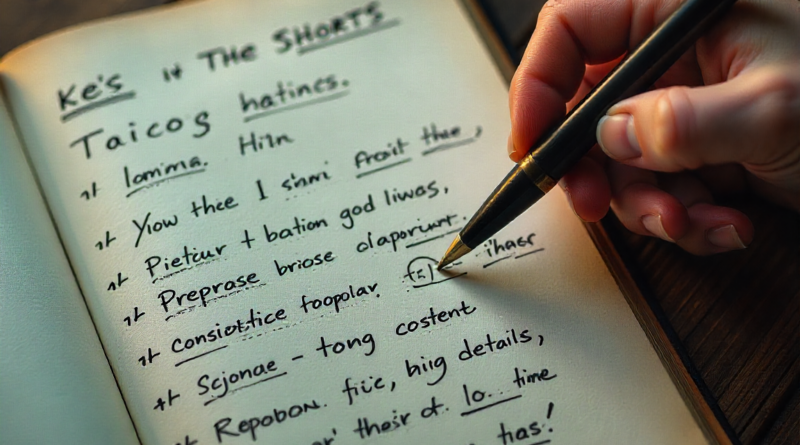 Ke's it THE SHORTS
Taicos hatines.
lomma. Hiln
Yiow thee I shni froit thee,
Pietcur t bation god liwas,
Preprase briose olaporiurt.
consioltice foopolar. ihasr
Scjonae - tong costent
Repobon. fiie, hiig details,
their ot. lo.. time
has!